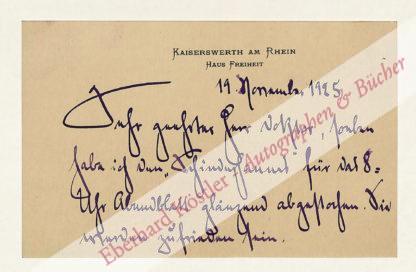 KAISERSWERTH AM RHEIN
HAUS FREIHEIT
19. November 1925.
Sehr geehrter Herr Doktor, soeben
habe ich den „Schinderhannes" für das 8-
Uhr Abendblatt glänzend abgestochen. Sie
werden zufrieden sein.
Eberhard Köstler Autographen & Bücher